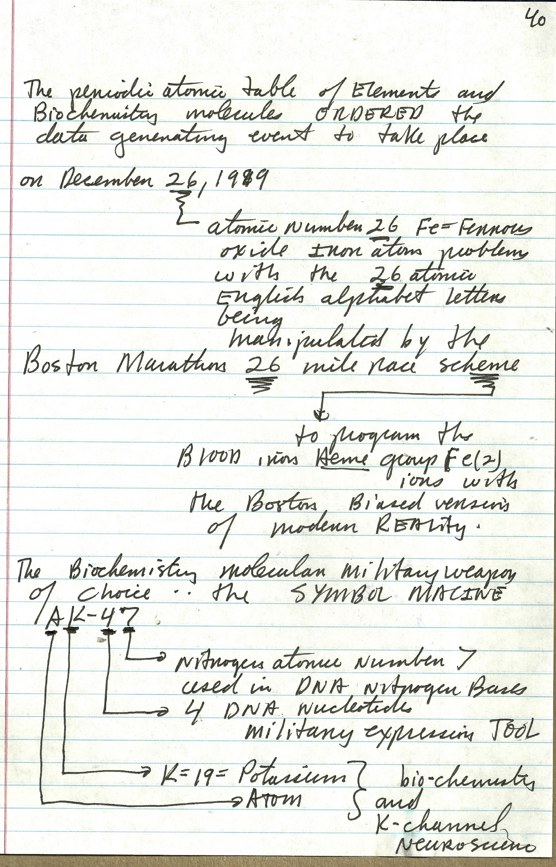 40
The periodic atomic table of Elements and
Biochemistry molecules ORDERED the
data generating event to take place
on December 26, 1989
atomic Number 26 Fe=Ferrous
oxide Iron atom problems
with the 26 atomic
English alphabet letters
being
manipulated by the
Boston Marathon 26 mile race scheme
to program the
Blood iron Heme group Fe(2)
ions with
the Boston Biased version
of modern REALity.
The Biochemistry molecular military weapon
of choice .. the SYMBOL MACINE
AK-47
Nitrogen atomic Number 7
used in DNA Nitrogen Bases
4 DNA nucleotides
military expression TOOL
K=19=Potassium
Atom
bio-chemistry
and
K-channel
Neurosciene